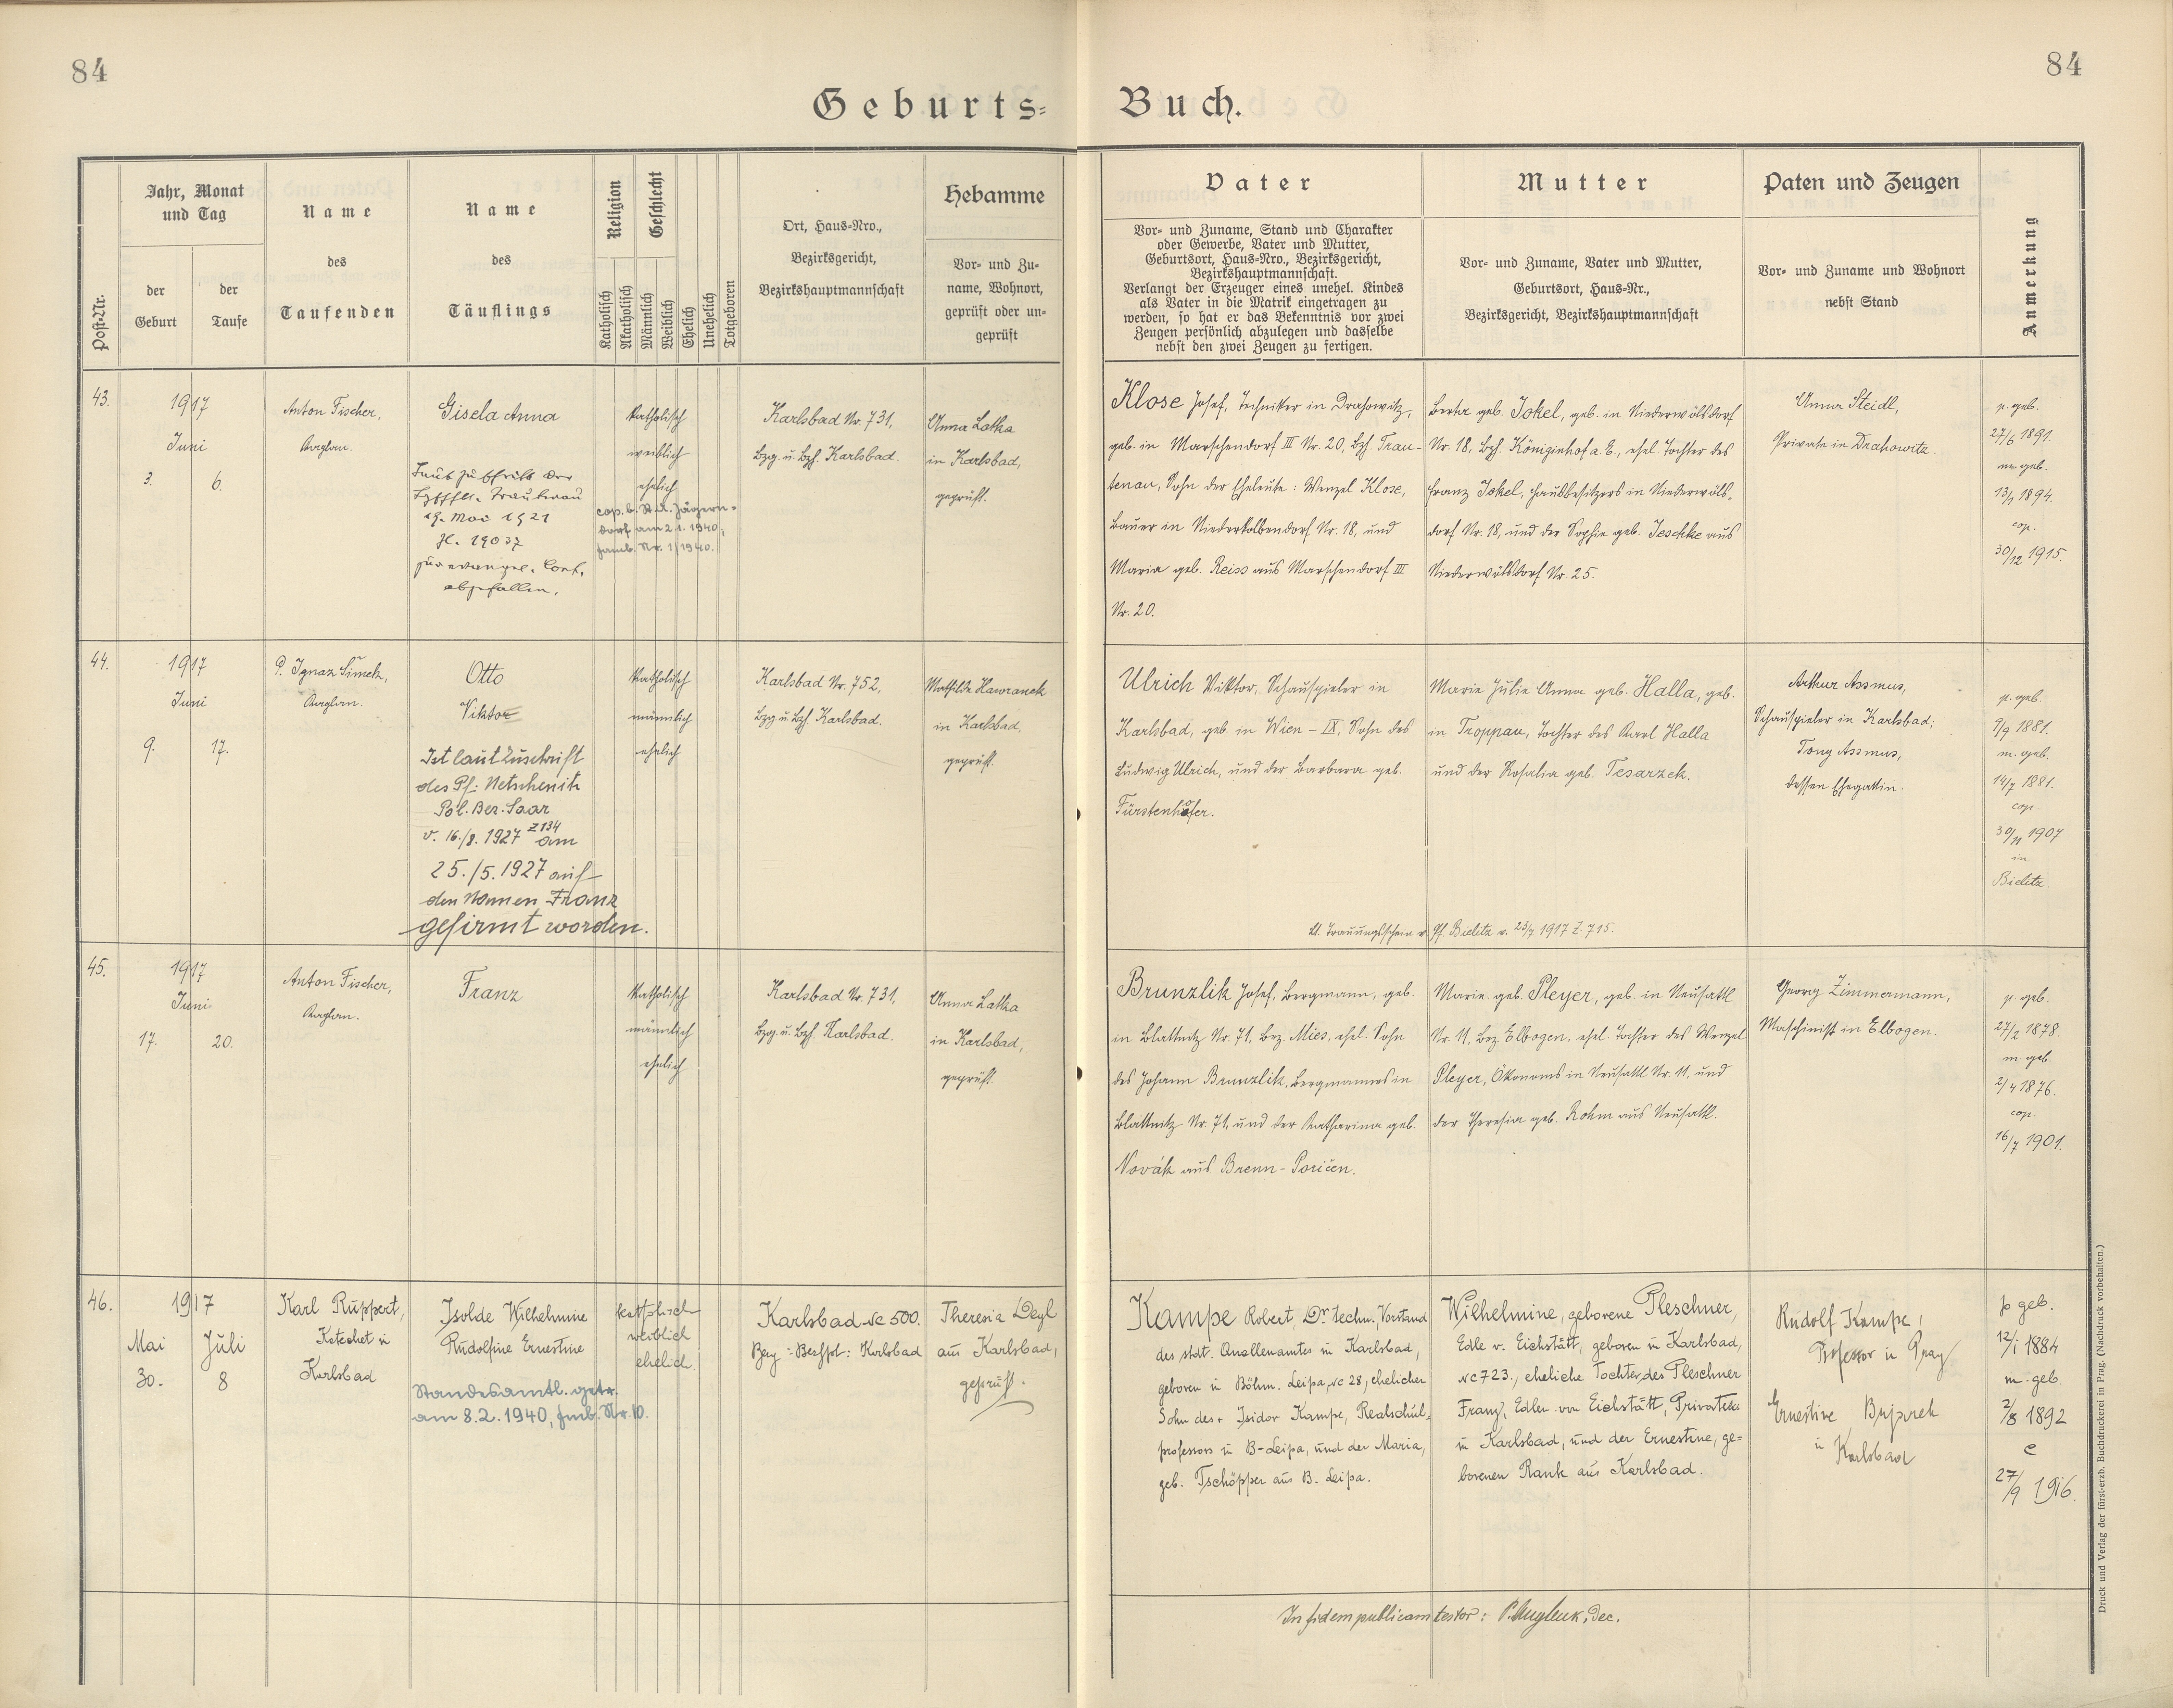 84
84
Geburts-
Buch.
Post-Nr.
Jahr, Monat
und Tag
der
Geburt
der
Taufe
Name
des
Taufenden
Name
des
Täuflings
Religion
Geschlecht
Katholisch
Akatholisch
Männlich
Weiblich
Ehelich
Unehelich
Totgeboren
Ort, Haus-Nro.,
Bezirksgericht,
Bezirkshauptmannschaft
Hebamme
Vor- und Zu-
name, Wohnort,
geprüft oder un-
geprüft
Vater
Vor- und Zuname, Stand und Charakter
oder Gewerbe, Vater und Mutter,
Geburtsort, Haus-Nro., Bezirksgericht,
Bezirkshauptmannschaft.
Verlangt der Erzeuger eines unehel. Kindes
als Vater in die Matrik eingetragen zu
werden, so hat er das Bekenntnis vor zwei
Zeugen persönlich abzulegen und dasselbe
nebst den zwei Zeugen zu fertigen.
Mutter
Vor- und Zuname, Vater und Mutter,
Geburtsort, Haus-Nr.,
Bezirksgericht, Bezirkshauptmannschaft
Paten und Zeugen
Vor- und Zuname und Wohnort
nebst Stand
Anmerkung
43.
1917
Juni
3.
6.
Anton Fischer,
Kaplan.
Gisela Anna
Laut Zuschrift der
Trautenau
19. Mai 1921
Zl. 19037
zur evangel. Conf.
abgefallen.
katholisch
weiblich
ehelich
cop. b. St. A. Jägern-
dorf am 2.1.1940,
Famb. Nr. 1/1940.
Karlsbad Nr. 731,
Bzg. u. Bzh. Karlsbad.
Anna Latka
in Karlsbad,
geprüft.
Klose Josef, Techniker in Drahowitz,
geb. in Marschendorf III Nr. 20, Bzh. Trau-
tenau, Sohn der Eheleute: Wenzel Klose,
Bauer in Niederkolbendorf Nr. 18, und
Maria geb. Reiss aus Marschendorf III
Nr. 20.
Berta geb. Jokel, geb. in Niederwölsdorf
Nr. 18, Bzh. Königinhof a. E., ehel. Tochter des
Franz Jokel, Hausbesitzers in Niederwöls-
dorf Nr. 18, und der Sophie geb. Jeschke aus
Niederwölsdorf Nr. 25.
Anna Steidl,
Private in Drahowitz.
p. geb.
27/6 1891.
m. geb.
13/1 1894.
cop.
30/12 1915.
44.
1917
Juni
9.
17.
P. Ignaz Šimek,
Kaplan.
Otto
Viktor
Ist laut Zuschrift
des Pf: Netschenitz
Pol. Ber. Saaz
v. 16./8. 1927 Z 134 am
25./5. 1927 auf
den Namen Franz
gefirmt worden.
katholisch
männlich
ehelich
Karlsbad Nr. 752,
Bzg u. Bzh. Karlsbad.
Mathilde Hawranek
in Karlsbad,
geprüft.
Ulrich Viktor, Schauspieler in
Karlsbad, geb. in Wien - IX, Sohn des
Ludwig Ulrich, und der Barbara geb.
Fürstenhofer.
Marie Julie Anna geb. Halla, geb.
in Troppau, Tochter des Karl Halla
und der Rosalia geb. Tesarzek.
Arthur Assmus,
Schauspieler in Karlsbad;
Tony Assmus,
dessen Ehegattin.
p. geb.
9/9 1881.
m. geb.
14/7 1881.
cop.
30/11 1907
in
Bielitz.
lt. Trauungsschein v. Pf. Bielitz v. 23/7 1917 Z. 715.
45.
1917
Juni
17.
20.
Anton Fischer,
Kaplan.
Franz
katholisch
männlich
ehelich
Karlsbad Nr. 731,
Bzg. u. Bzh. Karlsbad.
Anna Latka
in Karlsbad,
geprüft.
Brunzlik Josef, Bergmann, geb.
in Blattnitz Nr. 71, Bez. Mies, ehel. Sohn
des Johann Brunzlik, Bergmannes in
Blattnitz Nr. 71, und der Katharina geb.
Novák aus Brenn-Poričen.
Marie geb. Pleyer, geb. in Neusattl
Nr. 11, Bez. Elbogen, ehel. Tochter des Wenzel
Pleyer, Ökonoms in Neusattl Nr. 11, und
der Theresia geb. Rohm aus Neusattl.
Georg Zimmermann,
Maschinist in Elbogen.
p. geb.
27/2 1878.
m. geb.
2/4 1876.
cop.
16/7 1901.
46.
1917
Mai
Juli
30.
8
Karl Ruppert,
Katechet in
Karlsbad
Isolde Wilhelmine
Rudolfine Ernestine
Standesamtl. getr.
am 8.2.1940, Fmb. Nr. 10.
katholisch
weiblich
ehelich.
Karlsbad Nc 500.
Bezg: Beshpt: Karlsbad
Theresia Deyl
aus Karlsbad,
geprüft.
Kampe Robert, Dr techn. Vorstand
des städt. Quellenamtes in Karlsbad,
geboren in Böhm. Leipa, Nc 28, ehelicher
Sohn des + Isidor Kampe, Realschul-
professors in B-Leipa, und der Maria,
geb. Tschöpper aus B. Leipa.
Wilhelmine, geborene Pleschner,
Edle v. Eichstätt, geboren in Karlsbad,
Nc 723., eheliche Tochter des Pleschner
Franz, Edler von Eichstätt, Privatier
in Karlsbad, und der Ernestine, ge-
borenen Rank aus Karlsbad.
Rudolf Kampe,
Professor in Prag
Ernestine
in Karlsbad
p geb.
12/1 1884
m. geb
2/8 1892
c
27/9 1916.
In fidem publicam testor: Dec.
Druck und Verlag der fürst-erzb. Buchdruckerei in Prag. (Nachdruck vorbehalten.)